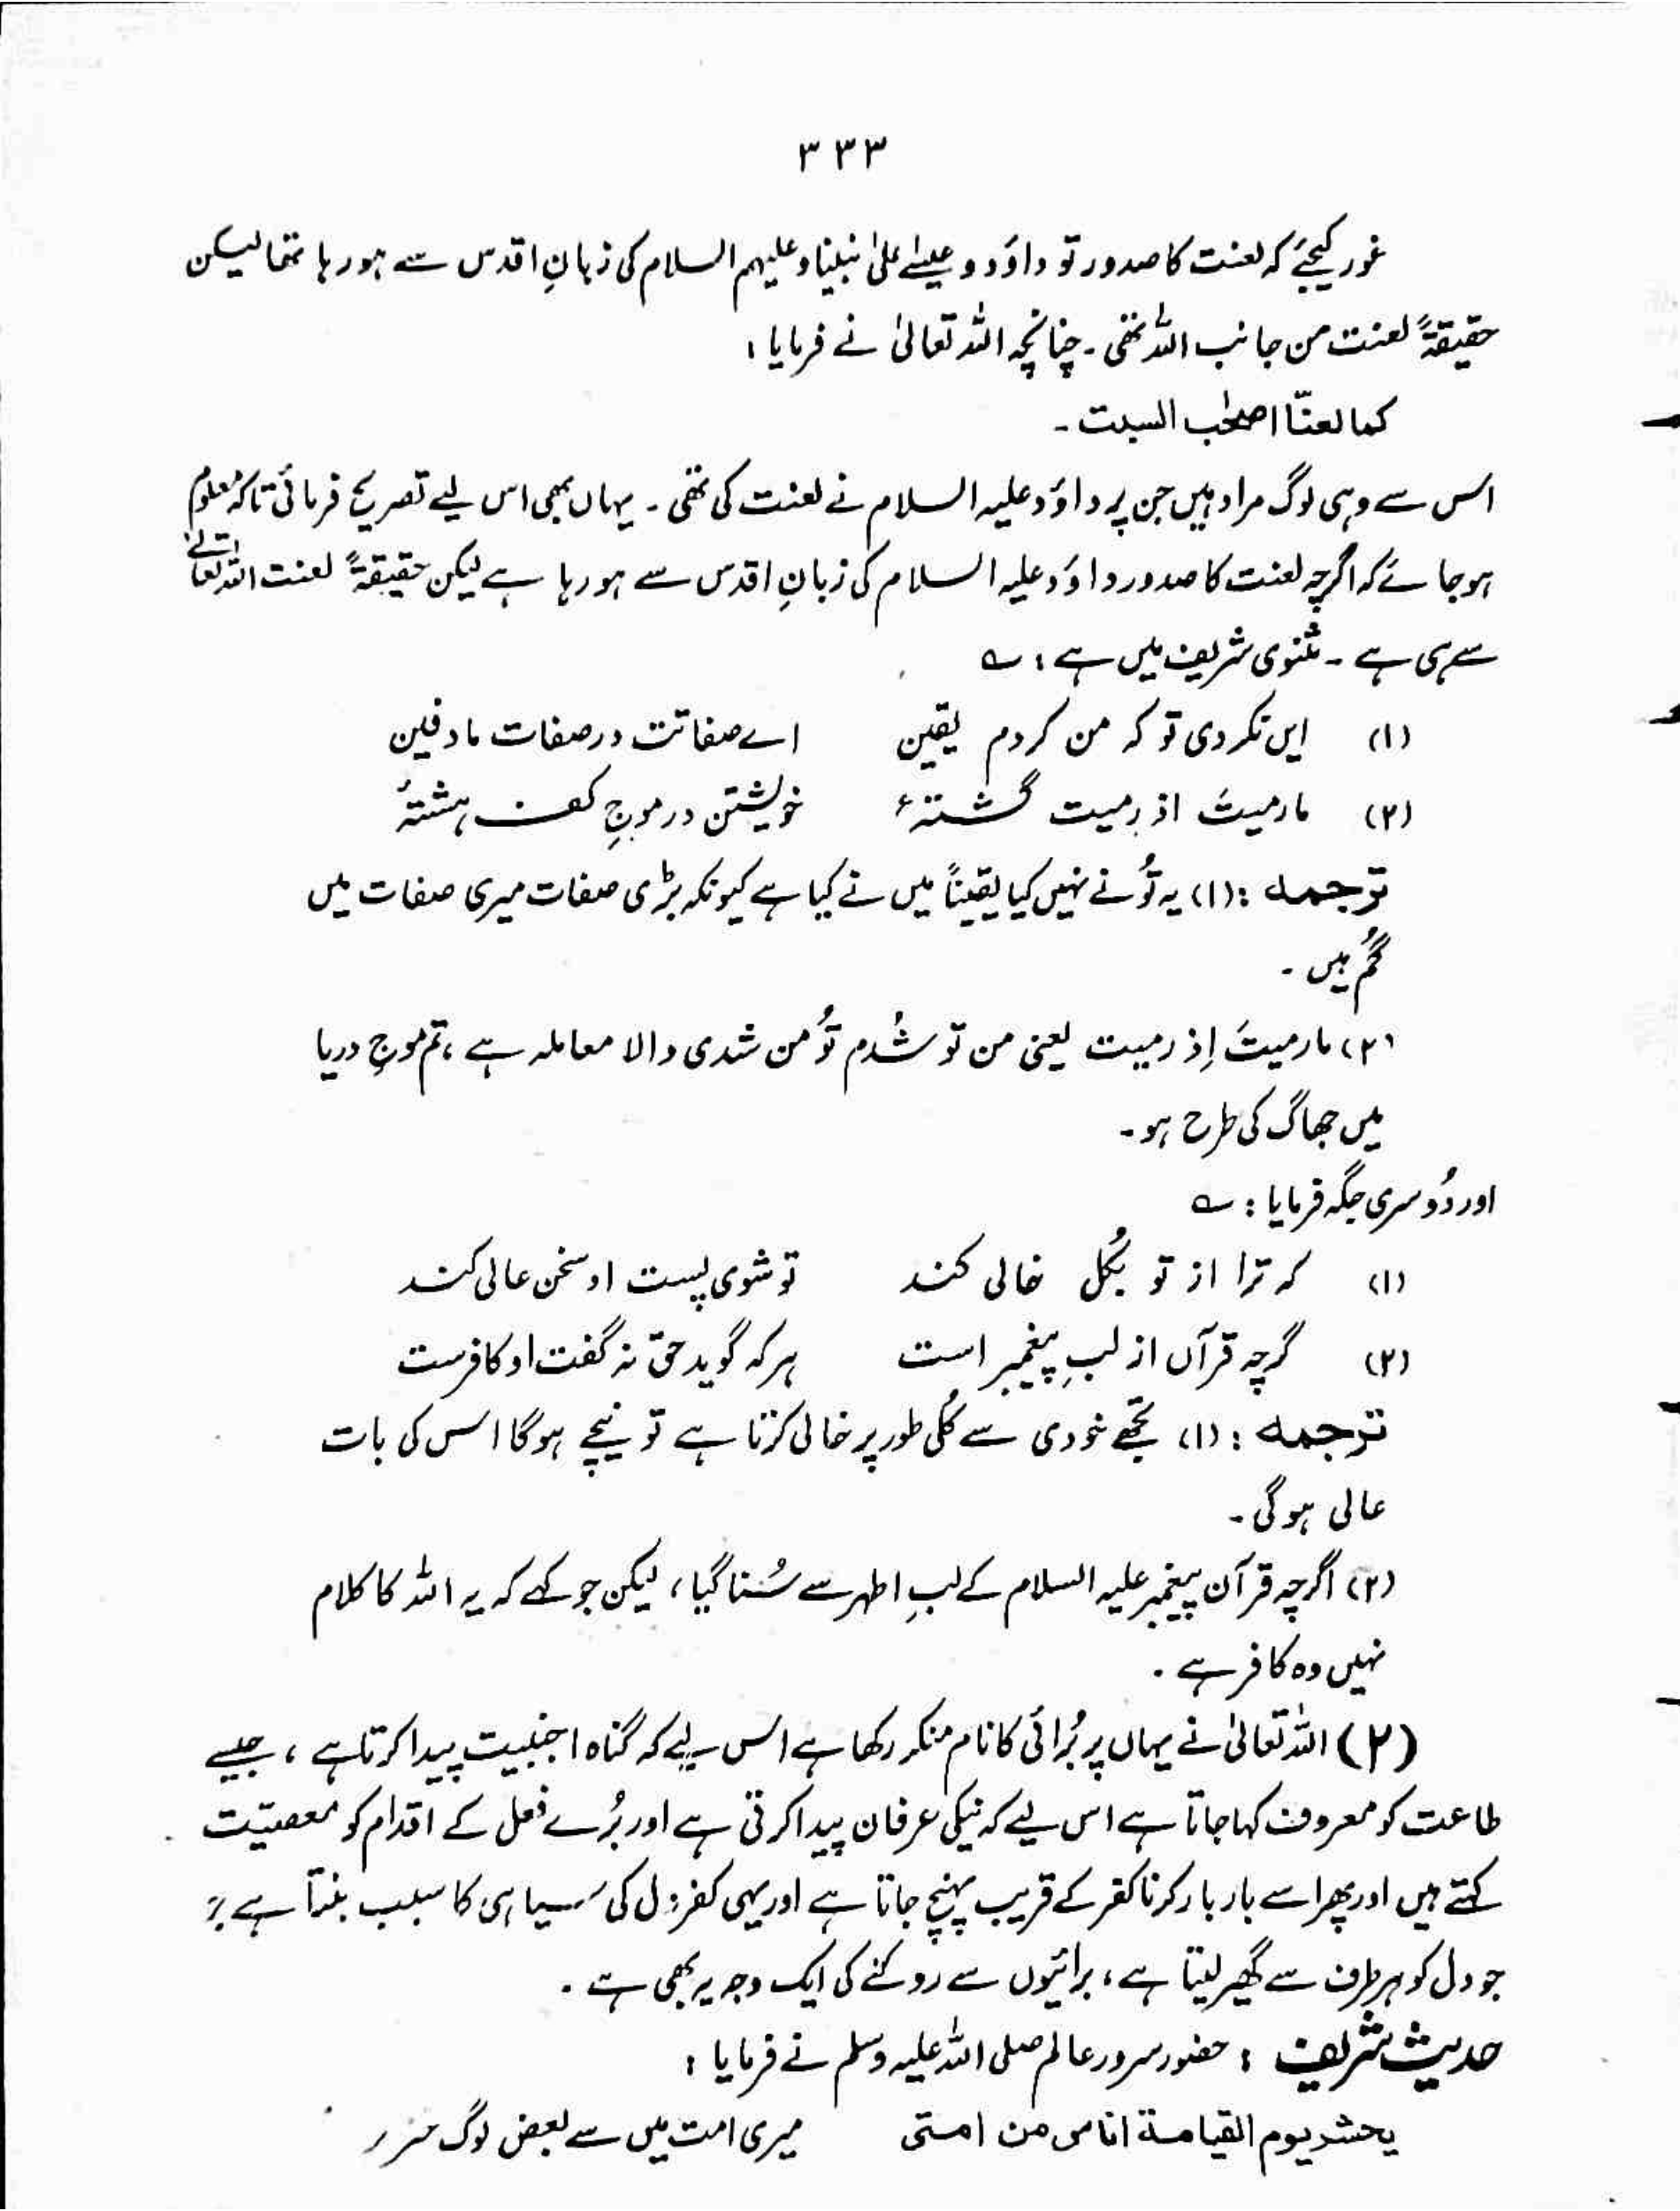 ۳۳۳
غور کیجئے کہ لعنت کا صدور تو داؤد و عیسٰے علیٰ نبینا و علیہم السلام کی زبانِ اقدس سے ہو رہا تھا لیکن
حقیقۃً لعنت من جانب اللہ تھی ۔ چنانچہ اللہ تعالیٰ نے فرمایا :
کما لعنّا اصحٰب السبت ۔
اس سے وہی لوگ مراد ہیں جن پر داؤد علیہ السلام نے لعنت کی تھی ۔ یہاں بھی اس لیے تصریح فرمائی تاکہ معلوم
ہو جائے کہ اگرچہ لعنت کا صدور داؤد علیہ السلام کی زبانِ اقدس سے ہو رہا ہے لیکن حقیقۃً لعنت اللہ تعالےٰ
سے ہی ہے ۔ مثنوی شریف میں ہے : ؎
(۱) ایں نکردی تو کہ من کردم یقین اے صفاتت در صفات ما دفین
(۲) ما رمیتَ اذ رمیت گشتۂ خویشتن در موجِ کف ہشتۂ
ترجمہ : (۱) یہ تُو نے نہیں کیا یقیناً میں نے کیا ہے کیونکہ بڑی صفات میری صفات میں
گُم ہیں ۔
(۲) ما رمیتَ اِذ رمیت یعنی من تو شُدم تُو من شدی والا معاملہ ہے ، تم موجِ دریا
میں جھاگ کی طرح ہو ۔
اور دُوسری جگہ فرمایا : ؎
(۱) کہ ترا از تو بکُل خالی کند تو شوی پست او سخن عالی کند
(۲) گرچہ قرآں از لبِ پیغمبر است ہر کہ گوید حق نہ گفت او کافرست
ترجمہ : (۱) تجھے خودی سے کُلی طور پر خالی کرتا ہے تو نیچے ہوگا اس کی بات
عالی ہوگی ۔
(۲) اگرچہ قرآن پیغمبر علیہ السلام کے لبِ اطہر سے سُنا گیا ، لیکن جو کہے کہ یہ اللہ کا کلام
نہیں وہ کافر ہے ۔
(۲) اللہ تعالیٰ نے یہاں پر بُرائی کا نام منکر رکھا ہے اس لیے کہ گناہ اجنبیت پیدا کرتا ہے ، جیسے
طاعت کو معروف کہا جاتا ہے اس لیے کہ نیکی عرفان پیدا کرتی ہے اور بُرے فعل کے اقدام کو معصیّت
کہتے ہیں اور پھر اسے بار بار کرنا کفر کے قریب پہنچ جاتا ہے اور یہی کفر دل کی سیاہی کا سبب بنتا ہے
جو دل کو ہر طرف سے گھیر لیتا ہے ، برائیوں سے روکنے کی ایک وجہ یہ بھی ہے ۔
حدیث شریف : حضور سرور عالم صلی اللہ علیہ وسلم نے فرمایا :
یحشر یوم القیامۃ اناس من امتی میری امت میں سے بعض لوگ